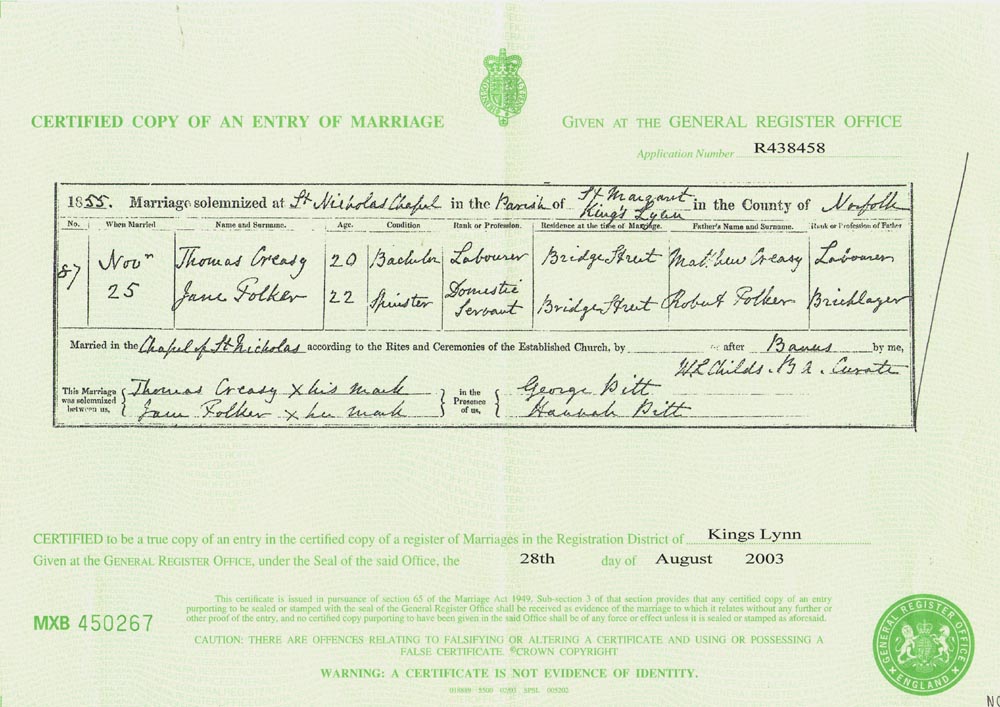 CERTIFIED COPY OF AN ENTRY OF MARRIAGE
GIVEN AT THE GENERAL REGISTER OFFICE
Application Number R438458
1855. Marriage solemnized at St Nicholas Chapel in the Parish of St Margaret King's Lynn in the County of Norfolk
No. When Married Name and Surname. Age. Condition Rank or Profession. Residence at the time of Marriage. Father's Name and Surname. Rank or Profession of Father
87 Novr 25
Thomas Creasy 20 Bachelor Labourer Bridge Street Matthew Creasy Labourer
Jane Folker 22 Spinster Domestic Servant Bridge Street Robert Folker Bricklayer
Married in the Chapel of St Nicholas according to the Rites and Ceremonies of the Established Church, by or after Banns by me,
W L Childs. B A. Curate
This Marriage was solemnized between us, { Thomas Creasy x his mark
Jane Folker x her mark }
in the Presence of us, { George Pitt
Hannah Pitt
CERTIFIED to be a true copy of an entry in the certified copy of a register of Marriages in the Registration District of Kings Lynn
Given at the GENERAL REGISTER OFFICE, under the Seal of the said Office, the 28th day of August 2003
MXB 450267
This certificate is issued in pursuance of section 65 of the Marriage Act 1949. Sub-section 3 of that section provides that any certified copy of an entry
purporting to be sealed or stamped with the seal of the General Register Office shall be received as evidence of the marriage to which it relates without any further or
other proof of the entry, and no certified copy purporting to have been given in the said Office shall be of any force or effect unless it is sealed or stamped as aforesaid.
CAUTION: THERE ARE OFFENCES RELATING TO FALSIFYING OR ALTERING A CERTIFICATE AND USING OR POSSESSING A
FALSE CERTIFICATE. ©CROWN COPYRIGHT
WARNING: A CERTIFICATE IS NOT EVIDENCE OF IDENTITY.
GENERAL REGISTER OFFICE
ENGLAND